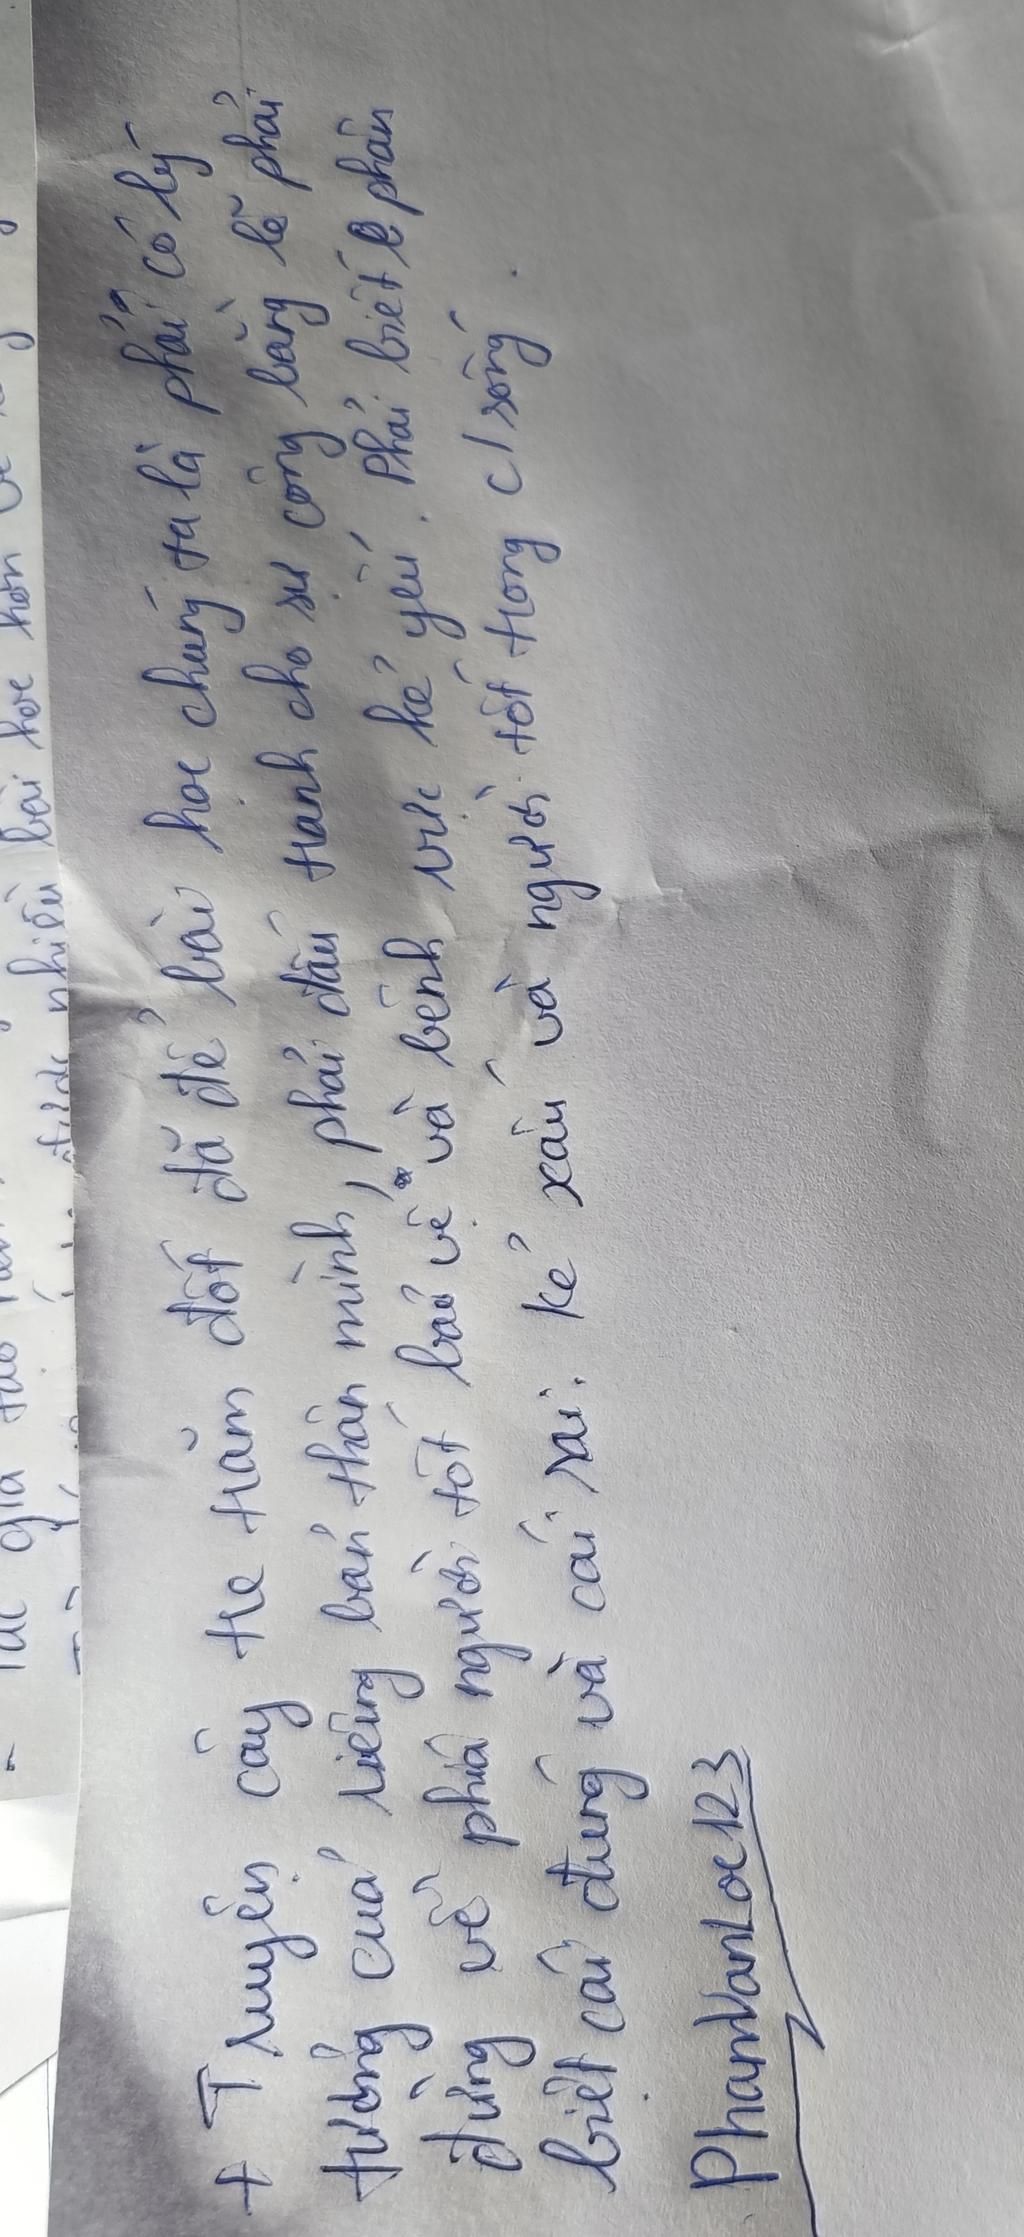 - Tác giả
bài học hơn
được nhiều
+ Truyện cây tre trăm đốt đã để bài học chúng ta là phải có lý
tưởng của riêng bản thân mình, phải đấu tranh cho sự công bằng lẽ phải
đứng về phía người tốt bảo vệ và bênh vực kẻ yếu. Phải biết phân
biệt cái đúng và cái sai. kẻ xấu và người tốt trong c/sống.
PhamVanLoc123